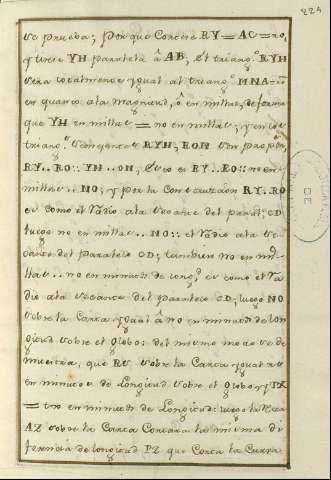 224
se prueba; porque como RY = AC = no,
y tiene YH paralela â AB, el triang.º RYH
sera totalmente ygual al triang.º
en quanto ala magnitud, ô en millas, de forma
que YH en millas = no en millas; y en los
triang.s semejantes RYH, RON son propor.
RY..RO:: YH..ON, Esto es RY..RO:: no en
millas..NO; y por la Construccion RY..RO
es como el Radio ala secante del paral. CD,
luego no en millas..NO:: el Radio ala se-
cante del paralelo CD; tambien no en mi-
llas..no en minutos de long.d es como el Ra-
dio ala secante del paralelo CD; luego NO
sobre la Carta ygual â no en minutos de lon-
gitud sobre el Globo: del mismo modo se de-
muestra, que RS sobre la Carta ygual
en minutos de Longitud sobre el Globo, y
= en minutos de Longitud: luego la
AZ sobre la Carta Contara la misma di-
ferencia de longitud PZ que Corta la Curva
DE